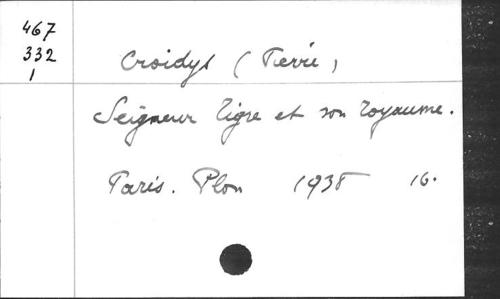 467
332
1
Croidys (Pierre)
Seigneur Tigre et son royaume.
Paris. Plon 1938 16.